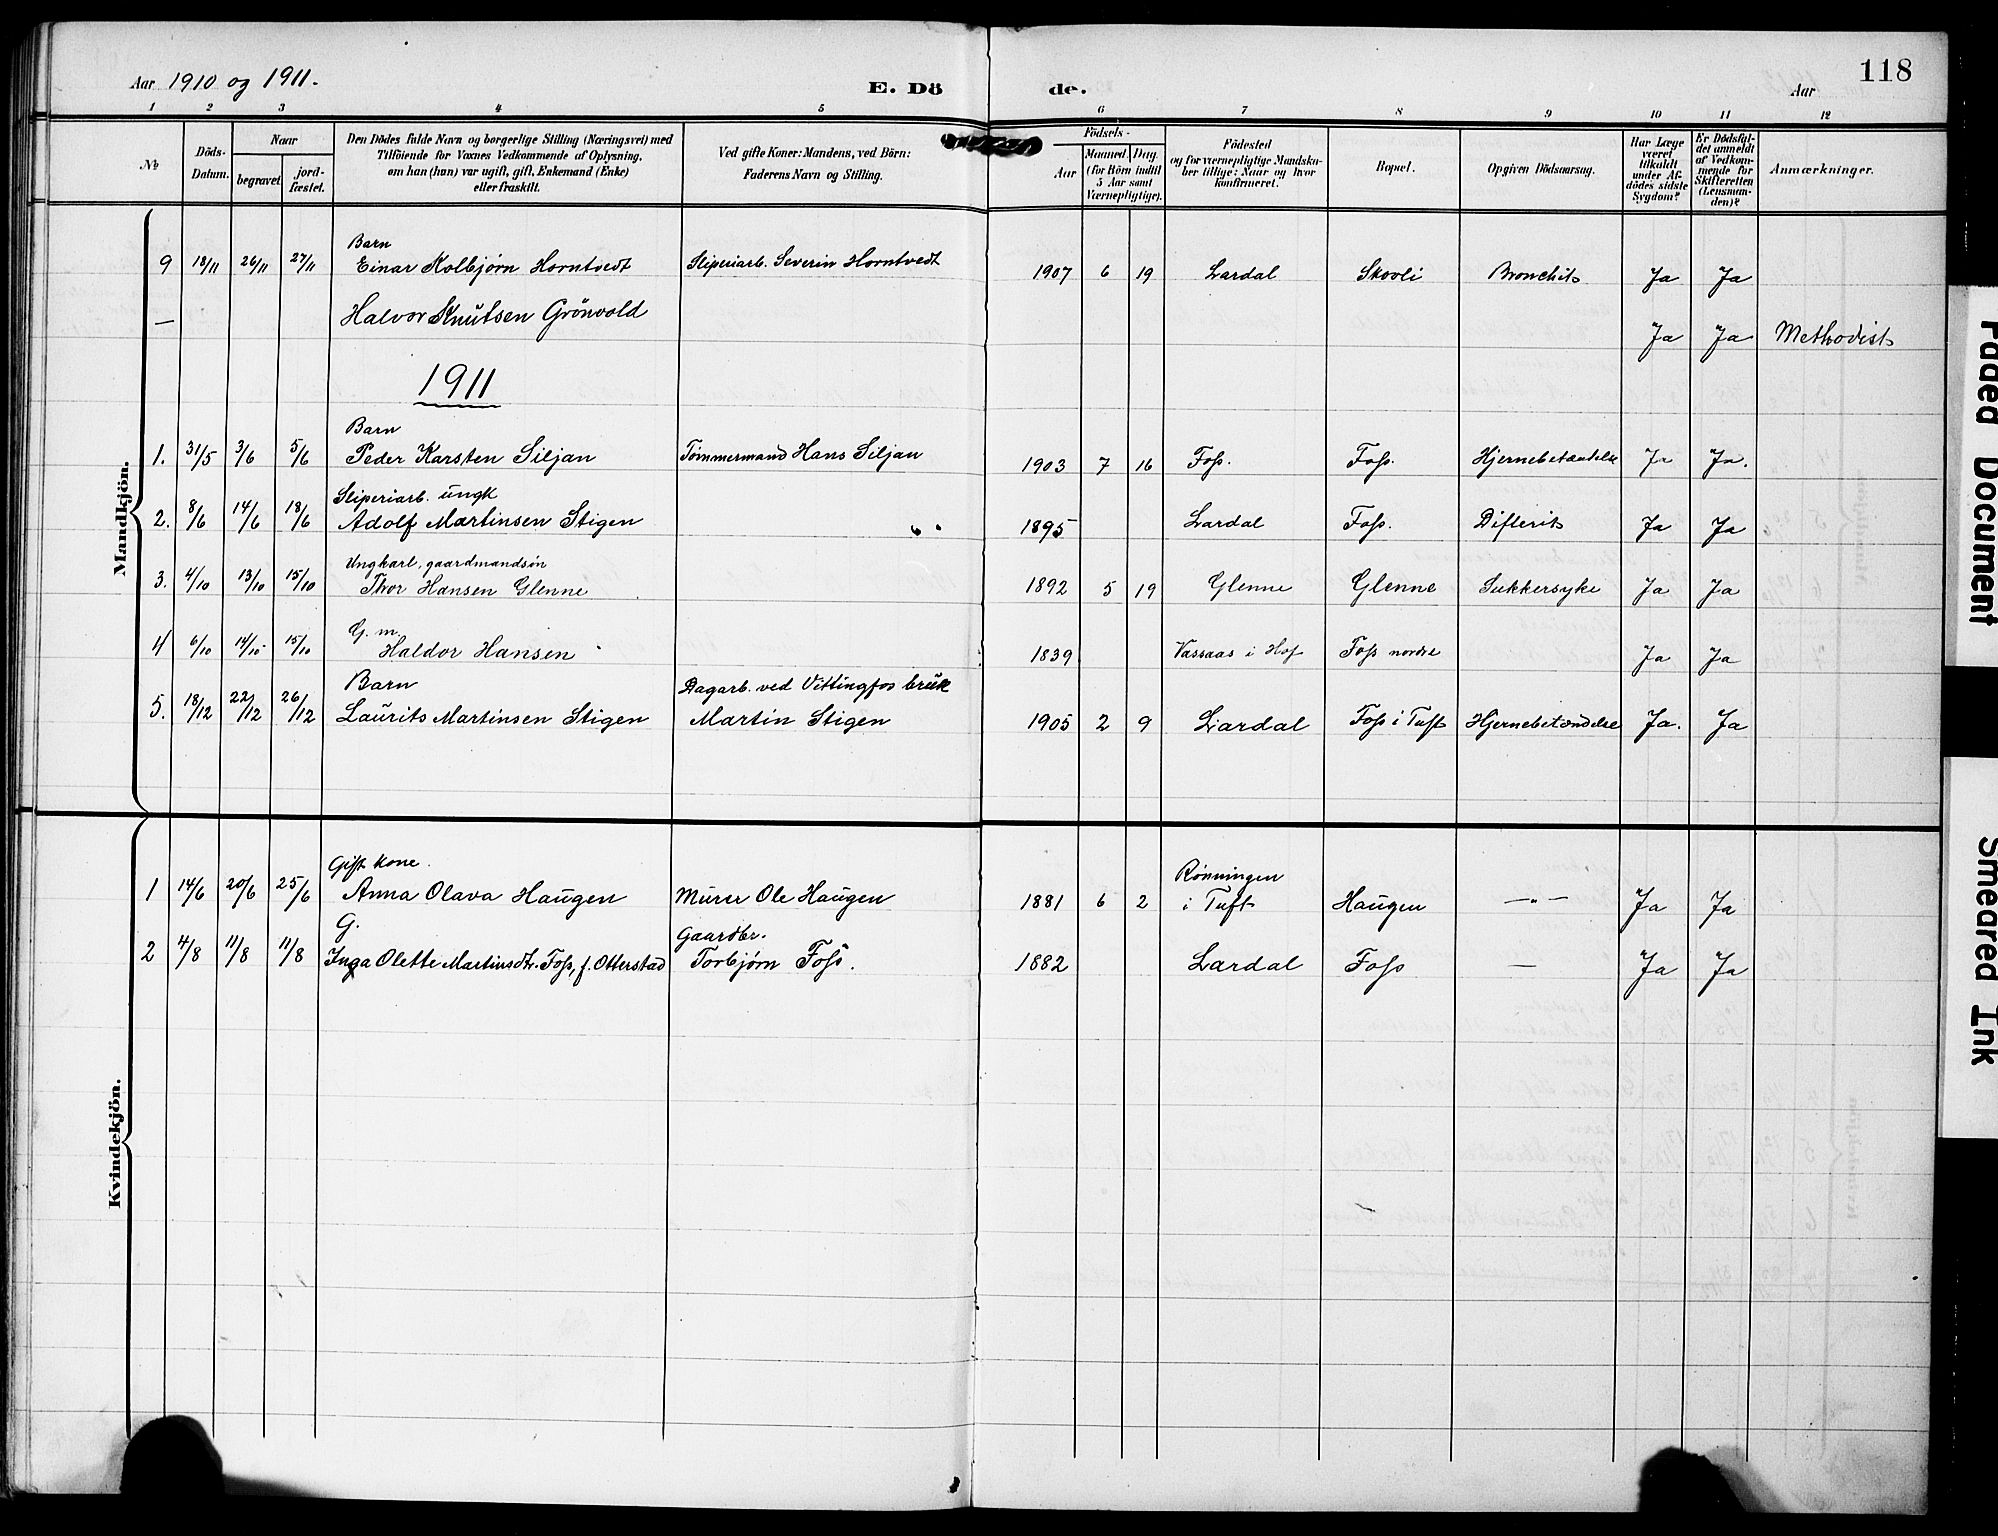 Aar 1910 og 1911.
E. Dö
de.
Aar
118
1 2 3 4 5 6 7 8 9 10 11 12
№
Döds-Datum.
Naar
begravet.
jord-fæstet.
Den Dödes fulde Navn og borgerlige Stilling (Næringsvei) med
Tilföiende for Voxnes Vedkommende af Oplysning,
om han (hun) var ugift, gift, Enkemand (Enke)
eller fraskilt.
Ved gifte Koner: Mandens, ved Börn:
Faderens Navn og Stilling.
Födsels-
Aar
Maaned. Dag.
(for Börn indtil
5 Aar samt
Værnepligtige).
Födested
og for værnepligtige Mandska-
ber tillige: Naar og hvor
konfirmeret.
Bopæl.
Opgiven Dödsaarsag.
Har Læge
været
tilkaldt
under Af-
dödes sidste
Sygdom?
Er Dödsfal-
det anmeldt
af Vedkom-
mende for
Skifteretten
(Lensman-
den)?
Anmærkninger.
Mandkjön.
Barn
9 18/11 26/11 27/11 Einar Kolbjørn Horntvedt Sliperiarb. Severin Horntvedt 1907 6 19 Lardal Skovli Bronchit Ja Ja
— Halvor Knutsen Grönvold Ja Ja Methodist
1911
Barn
1. 31/5 3/6 5/6 Peder Karsten Siljan Tømmermand Hans Siljan 1903 7 16 Foss. Foss. Hjernebetændelse Ja Ja.
Sliperiarb. ungk
2. 8/6 14/6 18/6 Adolf Martinsen Stigen 1895 Lardal Foss. Difterit Ja Ja
Ungkarl, gaardmandsøn
3. 4/10 13/10 15/10 Thor Hansen Glenne 1892 5 19 Glenne Glenne Sukkersyke Ja Ja
G. m
4 6/10 14/10 15/10 Haldor Hansen 1839 Vassaas i Hof Foss nordre Ja Ja
Barn Dagarb. ved Vittingfos bruk
5. 18/12 22/12 26/12 Laurits Martinsen Stigen Martin Stigen 1905 2 9 Lardal Foss i Tuft Hjernebetændelse Ja. Ja
Kvindekjön.
Gift kone. Rønningen
1 14/6 20/6 25/6 Anna Olava Haugen Murer Ole Haugen 1881 6 2 i Tuft Haugen —"— Ja Ja
G. Gaardbr.
2 4/8 11/8 11/8 Inga Olette Martinsdtr. Foss, f. Otterstad Torbjørn Foss. 1882 Lardal Foss — Ja Ja
Faded Document
Smeared Ink